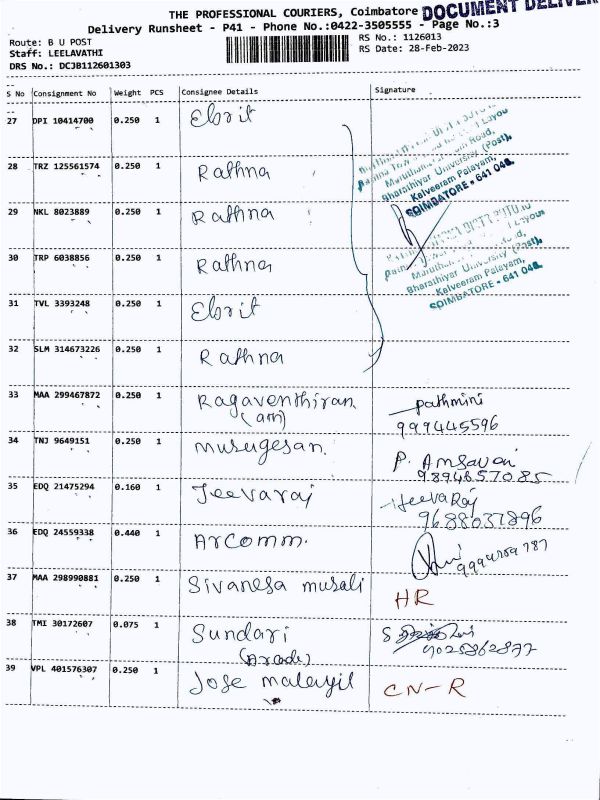 THE PROFESSIONAL COURIERS, Coimbatore DOCUMENT DELIVER
Delivery Runsheet - P41 - Phone No.:0422-3505555 - Page No.:3
Route: B U POST
RS No.: 1126013
Staff: LEELAVATHI
RS Date: 28-Feb-2023
DRS No.: DCJB112601303
S No Consignment No Weight PCS Consignee Details Signature
27 DPI 10414700 0.250 1 Elsrit
28 TRZ 125561574 0.250 1 Rathna
Maruthamalai Road,
Bharathiyar University (Post),
Kalveeram Palayam,
COIMBATORE - 641 046.
29 NKL 8023889 0.250 1 Rathna
30 TRP 6038856 0.250 1 Rathna
Bharathiyar University (Post),
Kalveeram Palayam,
COIMBATORE - 641 046.
31 TVL 3393248 0.250 1 Elsrit
32 SLM 314673226 0.250 1 Rathna
33 MAA 299467872 0.250 1 Ragaventhiran pathmini
999445596
34 TNJ 9649151 0.250 1 Murugesan. P. Amsavani
9894657085
35 EDQ 21475294 0.160 1 Jeevaraj Jeeva Raj
9688037896
36 EDQ 24559338 0.440 1 Arcomm.
37 MAA 298990881 0.250 1 Sivanesa murali HR
38 TMI 30172607 0.075 1 Sundari S
9025862877
39 VPL 401576307 0.250 1 Jose malayil CN-R